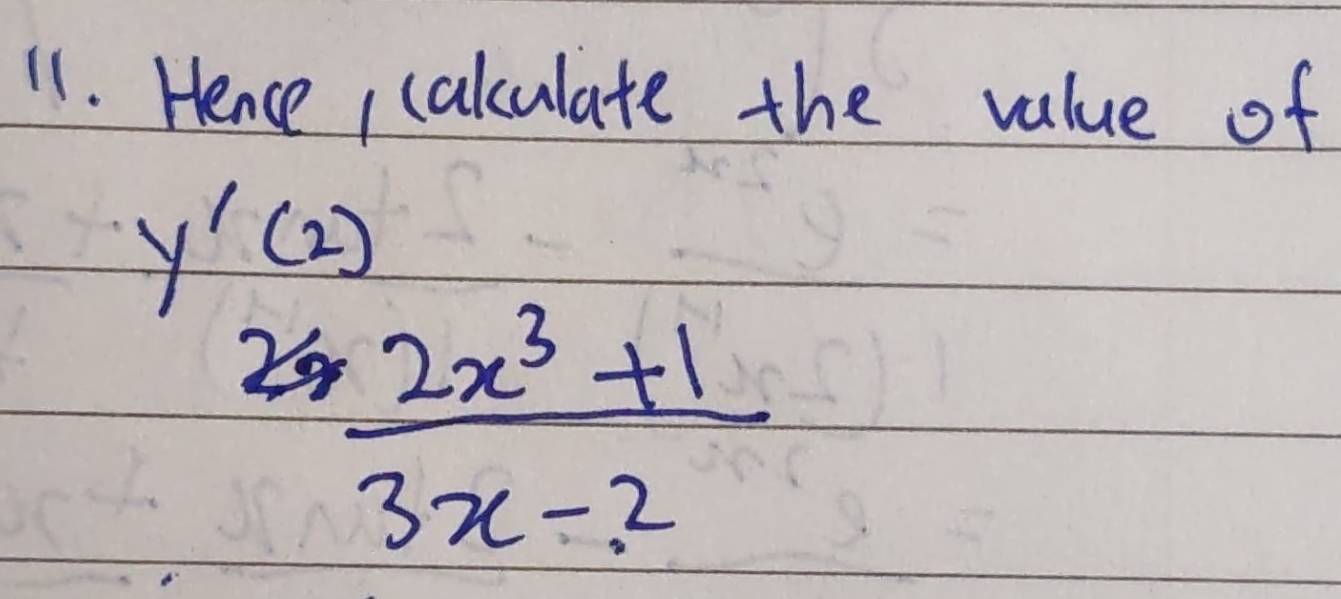 11. Hence, calculate the value of
y'(2)
2x³ +1
3x-2